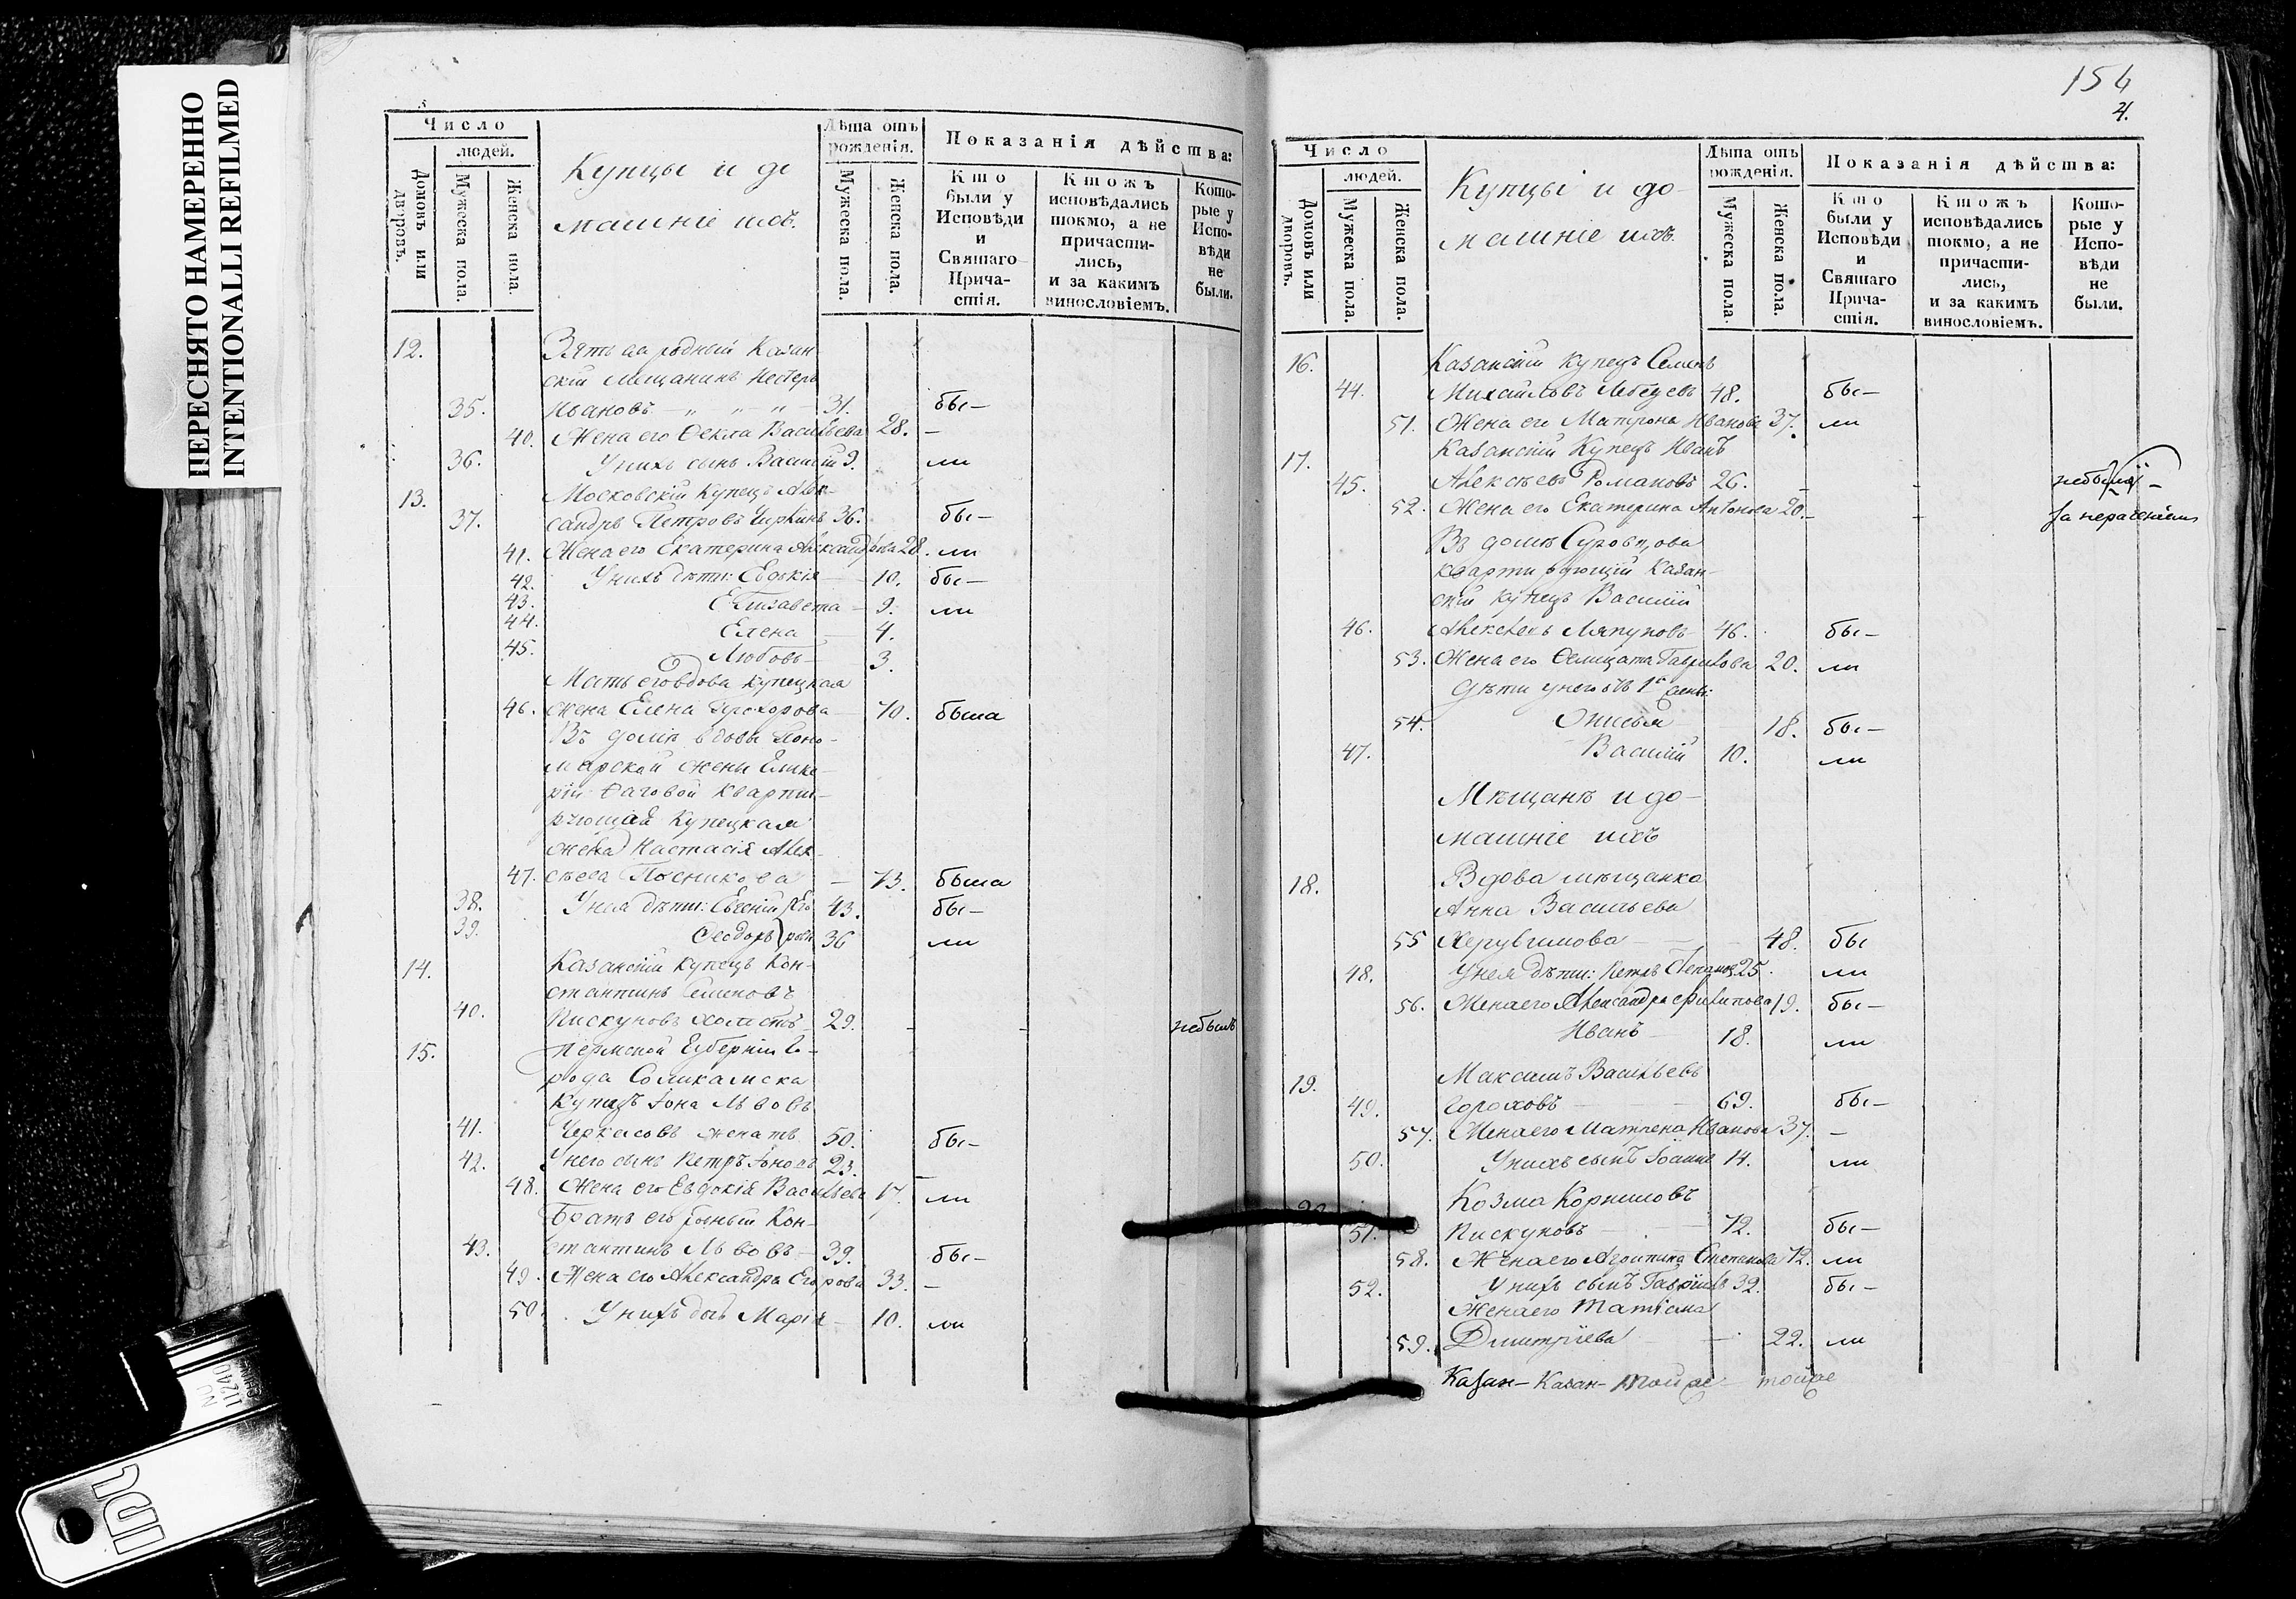 ПЕРЕСНЯТО НАМЕРЕННО
INTENTIONALLI REFILMED
Число
людей.
Домовъ или дворовъ.
Мужеска пола.
Женска пола.
Купцы и до
машніе ихъ.
Лѣта отъ рожденія.
Мужеска пола.
Женска пола.
Показанія дѣйства:
Кто были у Исповѣди и Святаго Прича-стія.
Ктожъ исповѣдались токмо, а не причасти-лись, и за какимъ винословіемъ.
Кото-рые у Испо-вѣди не были.
12. Зять родный Казан-
скій мещанинъ Нестеръ
35. Ивановъ — „ — „ — „ — 31. бы—
40. Жена его Ѳекла Васильева 28. —
36. У нихъ сынъ Василій 9. ли
13. Московскій Купецъ Алек-
37. сандръ Петровъ 36. бы—
41. Жена его Екатерина Александрова 28. ли
42. У нихъ дѣти: Евдокія — 10. бы—
43. Елизавета — 9. ли
44. Елена — 4.
45. Любовь — 3.
Мать его вдова купецкая
46. жена Елена Прохорова — 70. была
Въ домѣ вдовы Поно-
марской жены
кварти-
рующая Купецкая
жена Настасія Алек-
47. сѣева Посникова — 73. была
38. У нея дѣти: Евгеній Его 43. бы—
39. Ѳеодоръ ровы 36 ли
14. Казанскій купецъ Кон-
стантинъ Семеновъ
40. Пискуновъ холостъ 29. — — небылъ
15. Пермской Губерніи Го-
рода Соликамска
Купецъ Іона Львовъ
41. Черкасовъ женатъ 50. бы—
42. У него сынъ Петръ Іоновъ 23.
48. Жена его Евдокія Васильева 17. ли
Братъ его родный Кон-
43. стантинъ Львовъ — 39. бы—
49. Жена его Александра Егорова 33. —
50. У нихъ дочь Марія — 10. ли
154
4.
Число
людей.
Домовъ или дворовъ.
Мужеска пола.
Женска пола.
Купцы и до-
машніе ихъ.
Лѣта отъ рожденія.
Мужеска пола.
Женска пола.
Показанія дѣйства:
Кто были у Исповѣди и Святаго Прича-стія.
Ктожъ исповѣдались токмо, а не причасти-лись, и за какимъ винословіемъ.
Кото-рые у Испо-вѣди не были.
16. Казанскій купецъ Семенъ
44. Михайловъ Лебедевъ 48. бы—
51. Жена его Матрона Иванова 37. ли
17. Казанскій Купецъ Иванъ
45. Алексѣевъ Романовъ 26. — —
52. Жена его Екатерина Антонова 20. — — за нераченіемъ
Въ домѣ
квартирующій Казан-
скій купецъ Василій
46. Алексѣевъ Ляпуновъ 46. бы—
53. Жена его Ѳелицата Гаврилова 20. ли
Дѣти у него отъ 1й жены:
54. 18. бы—
47. Василій 10. ли
Мѣщанѣ и до-
машніе ихъ
18. Вдова мѣщанка
Анна Васильева
55 Херувимова — 48. бы
48. У нея дѣти: Петръ Степановъ 25. ли
56. Жена его Александра Филипова 19. бы—
Иванъ — 18. ли
19. Максимъ Васильевъ
49. Гороховъ — 69. бы—
57. Жена его Матрена Иванова 37. —
50. У нихъ сынъ Іоаннъ 14. ли
20. Козма Корниловъ
51. Пискуновъ — 72. бы—
58. Жена его Агрипина Степанова 72. ли
52. У нихъ сынъ Гаврiилъ 39. бы—
Жена его Татіана
59. Дмитріева — 22. ли
Казан— Казан— тойже тойже